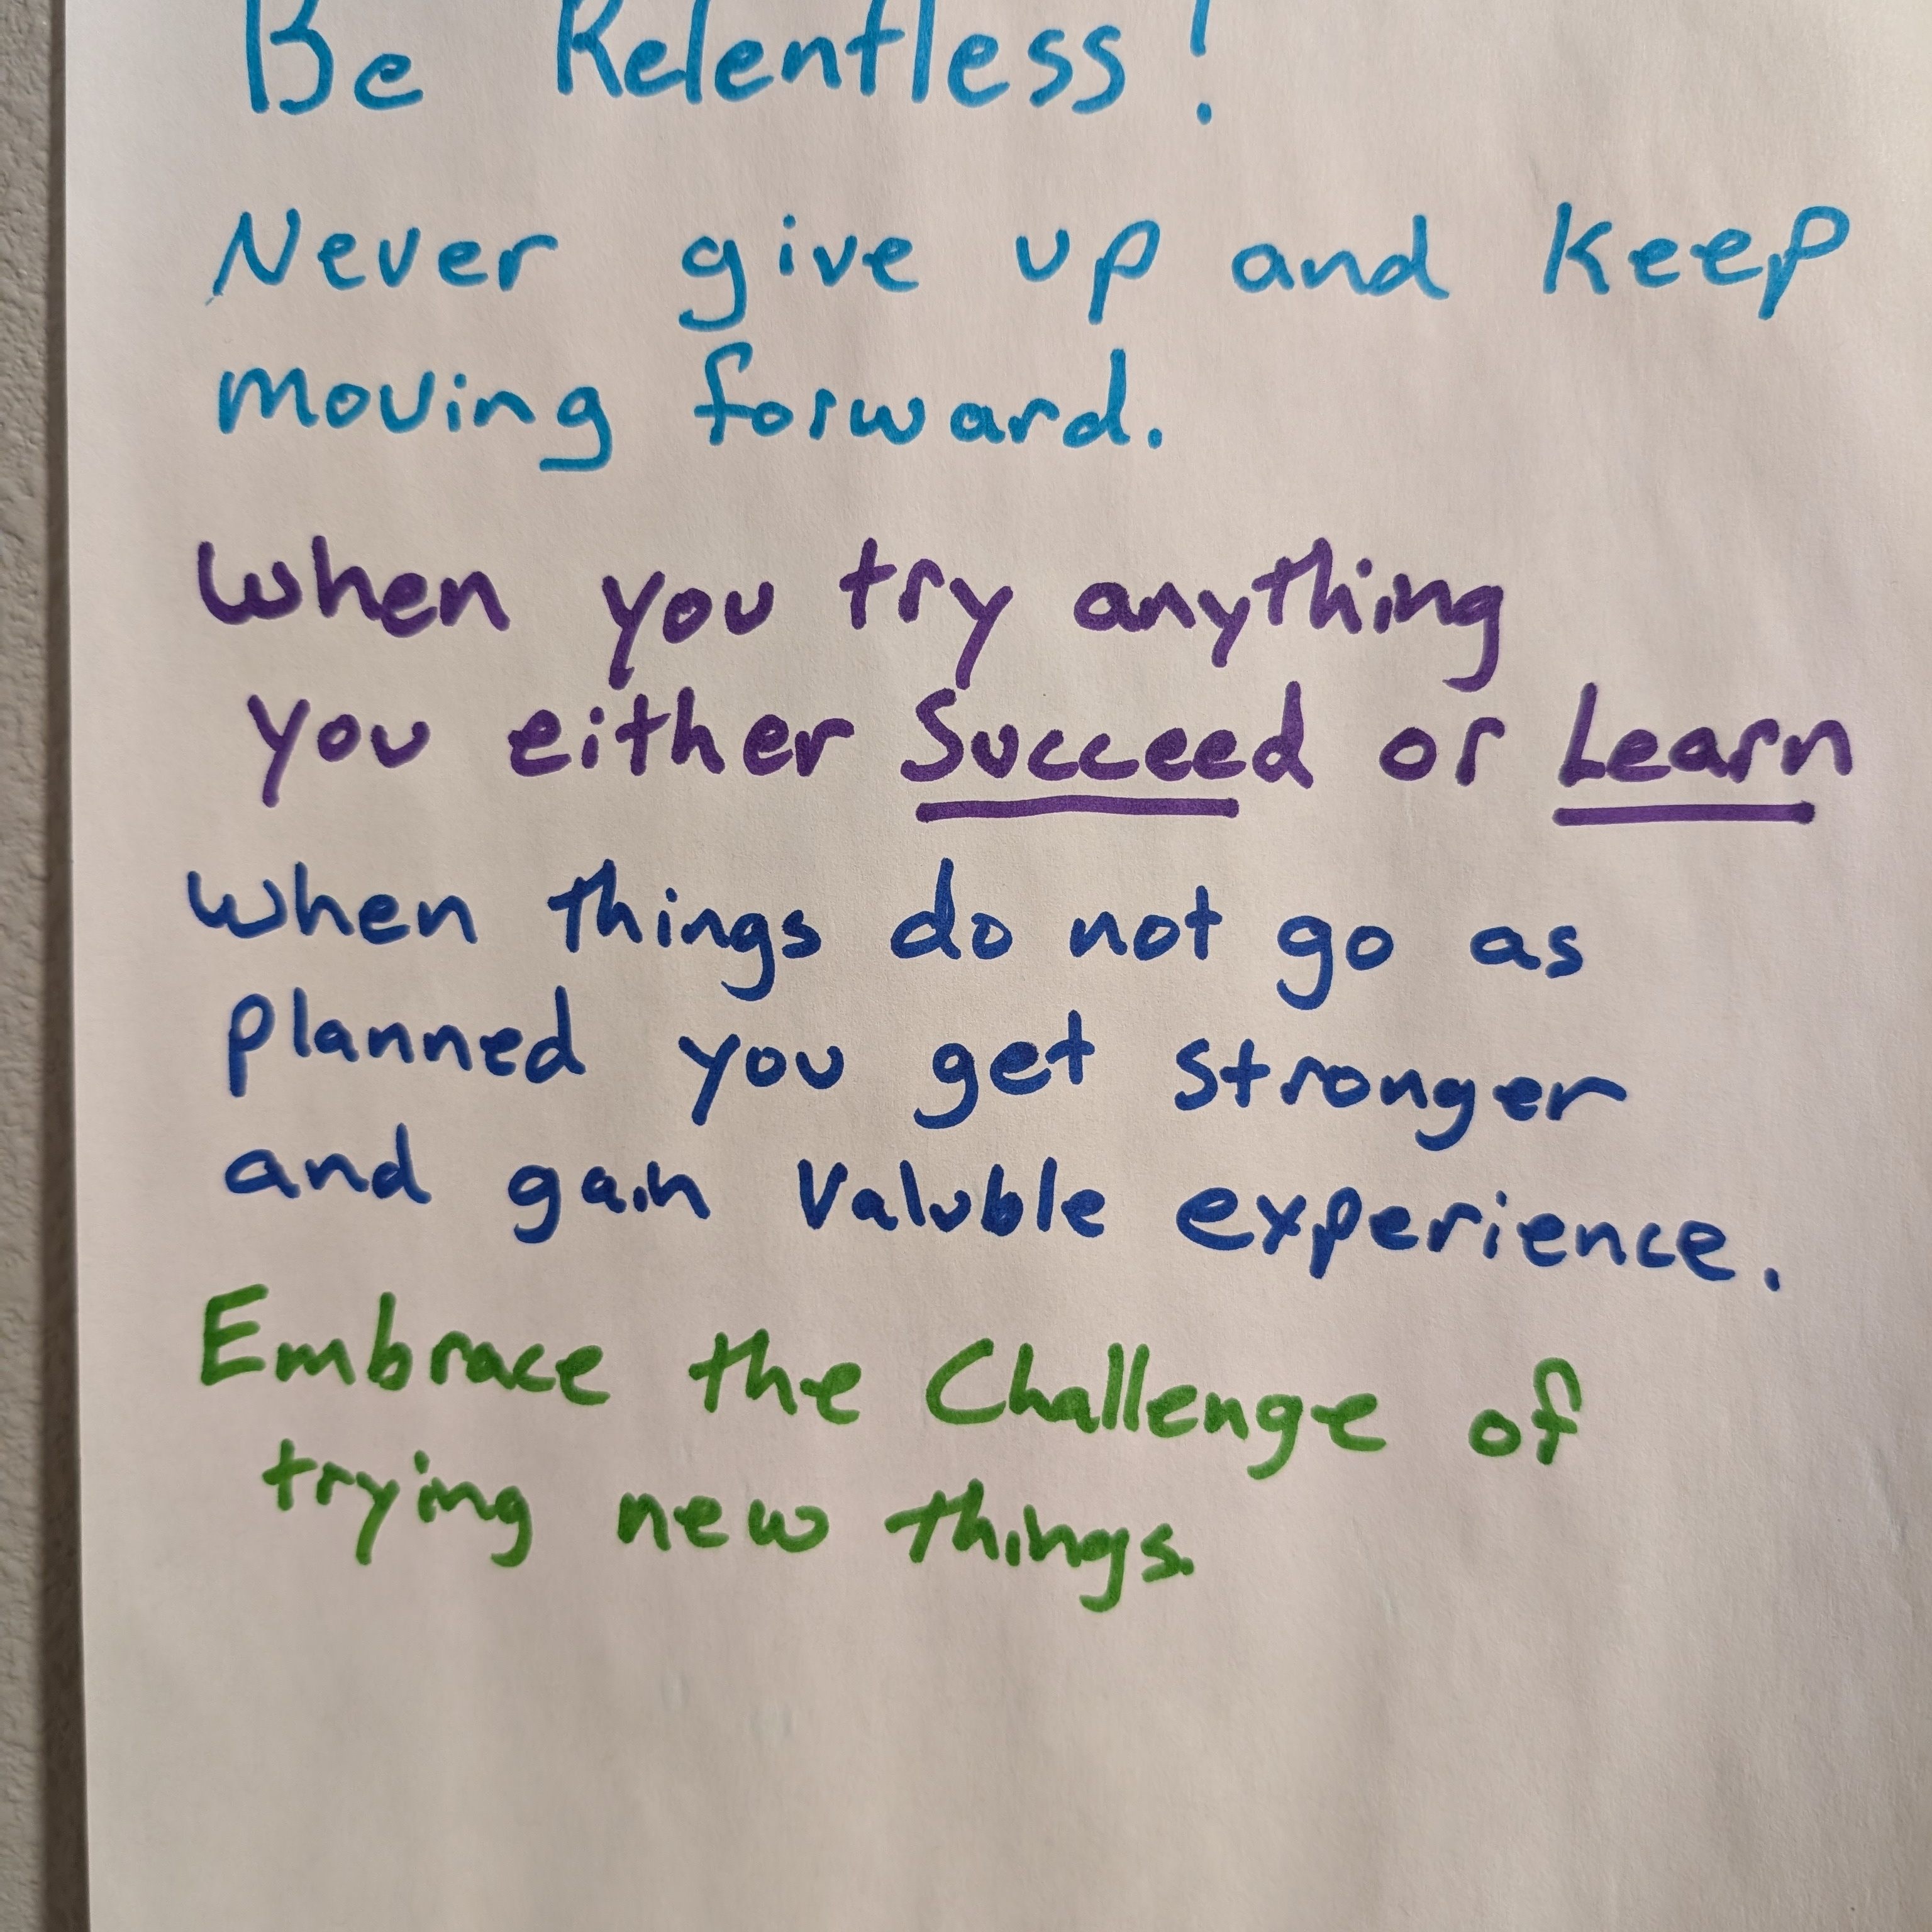 Be Relentless!
Never give up and keep
moving forward.
When you try anything
you either Succeed or Learn
When things do not go as
planned you get stronger
and gain Valuble experience.
Embrace the Challenge of
trying new things.